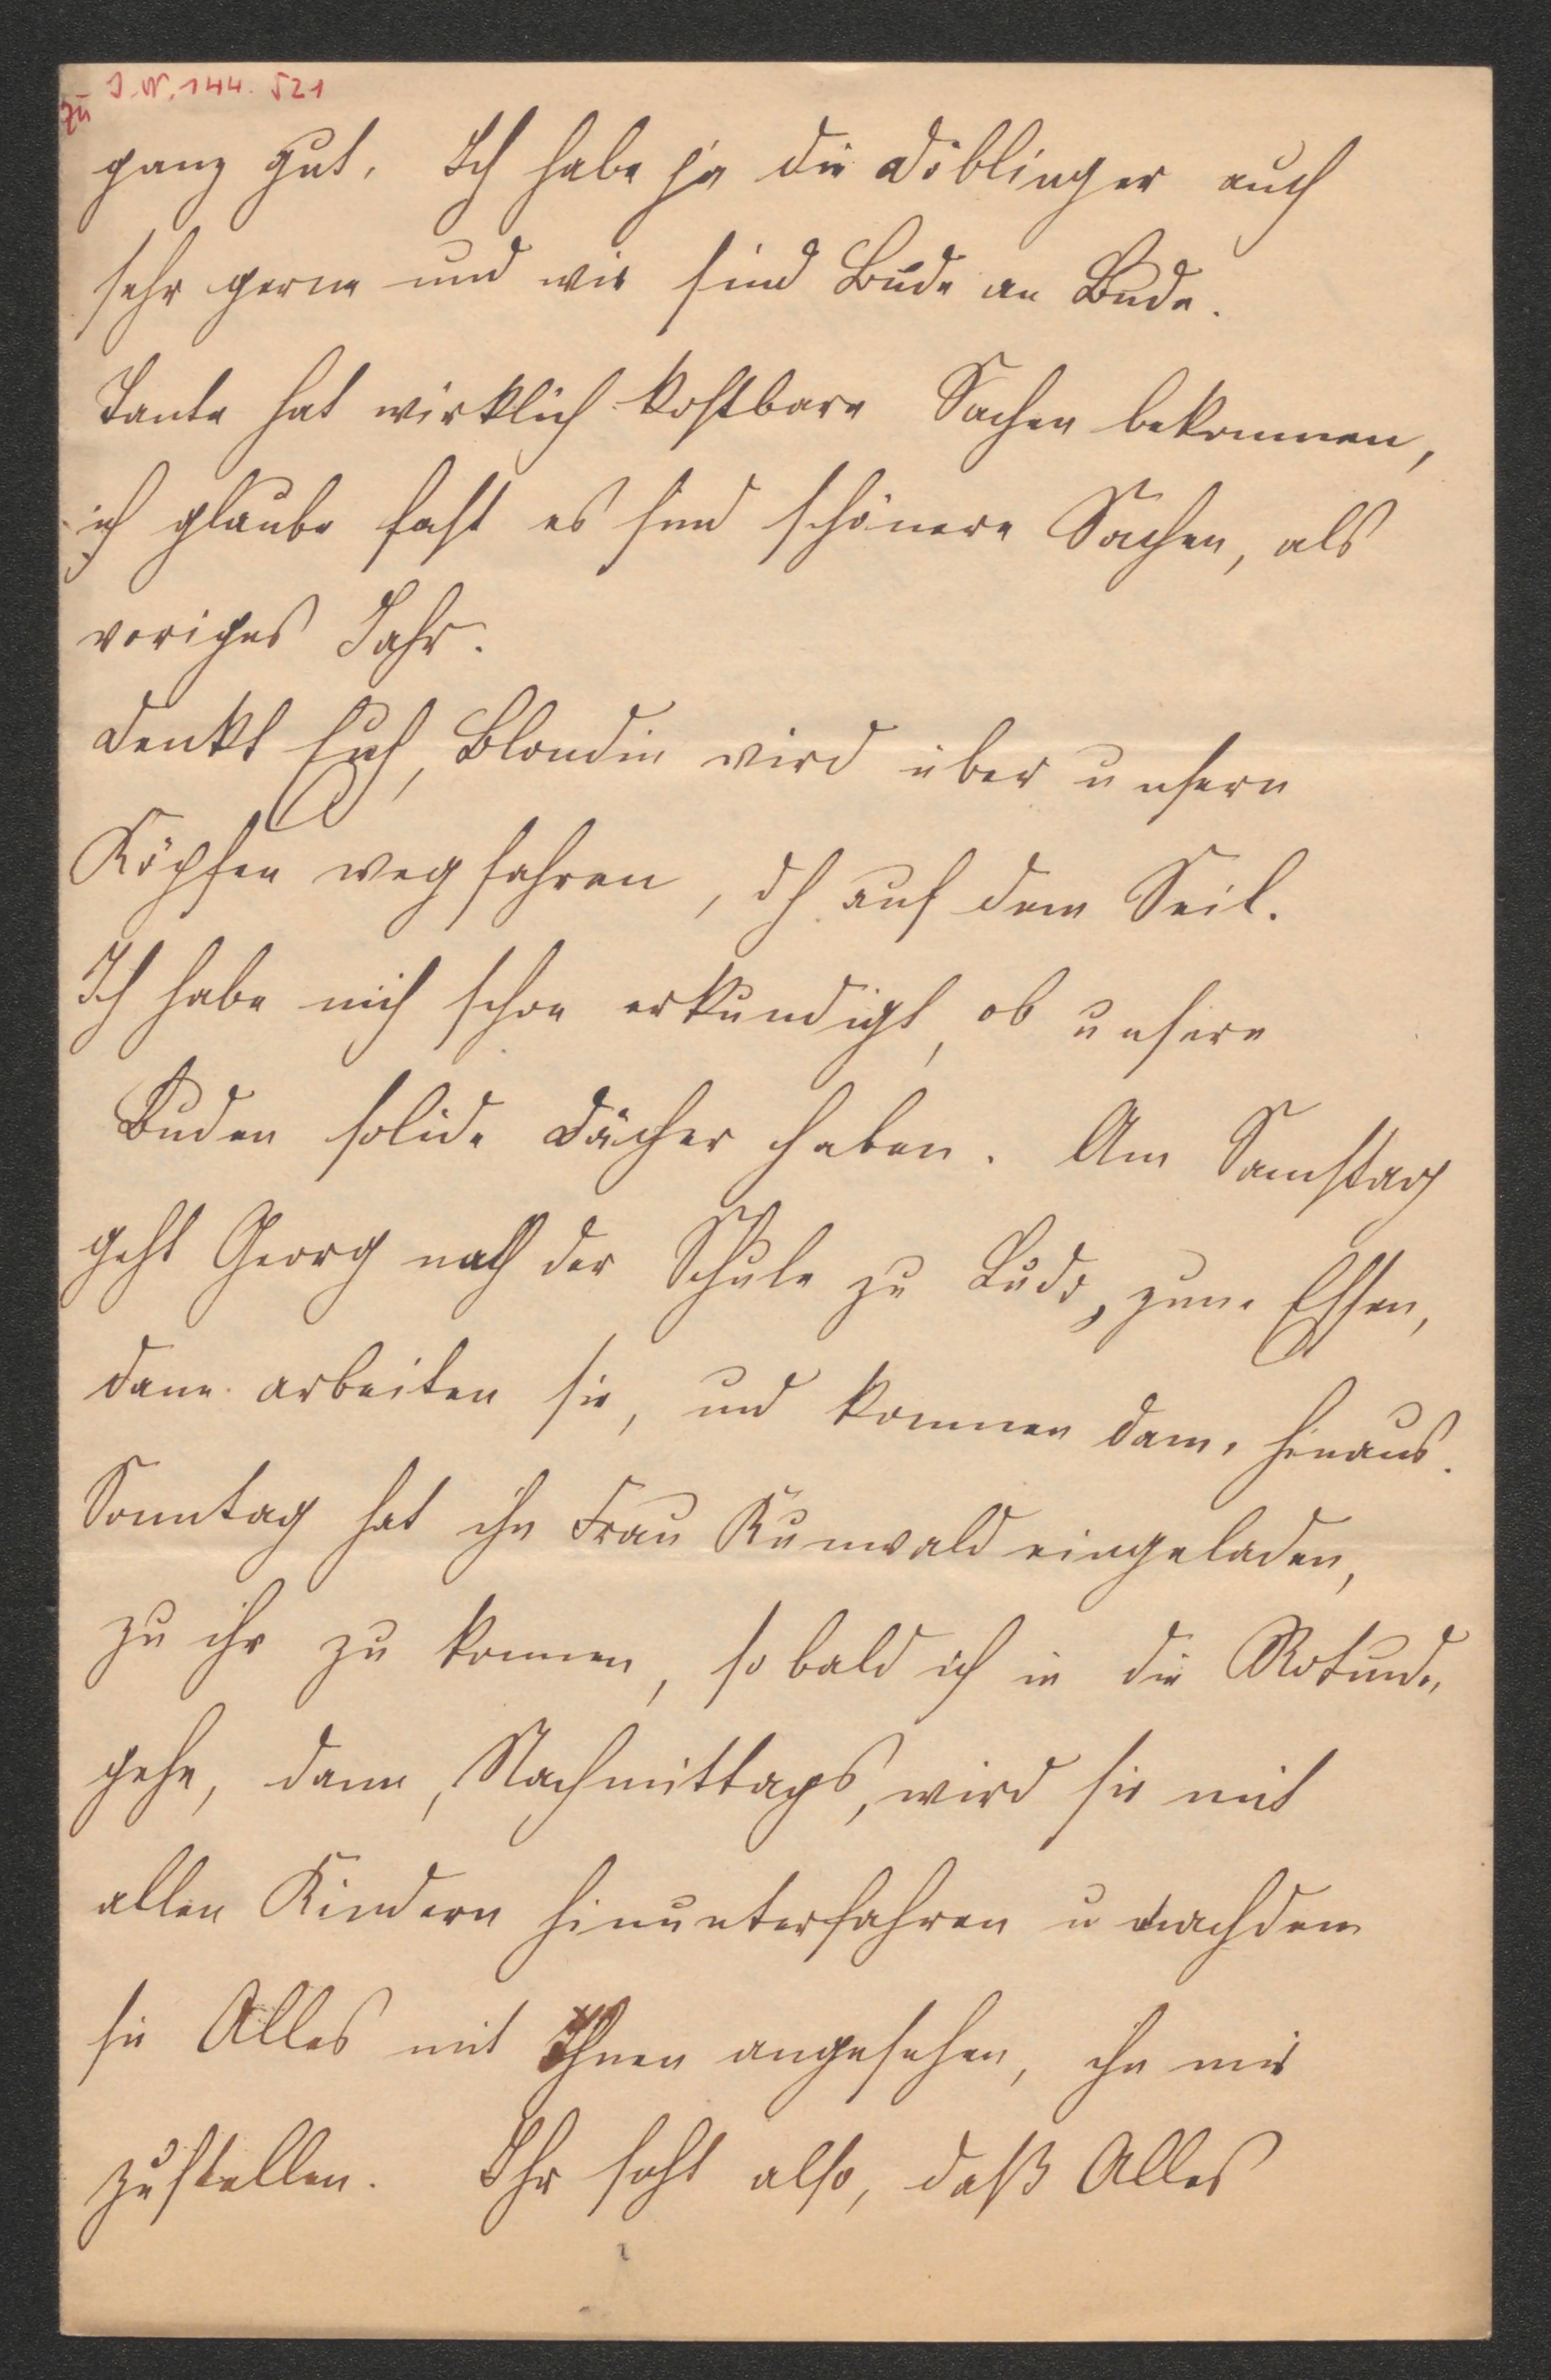 zu I.N. 144.521
ganz gut. Ich habe ja die Döblinger auch
sehr gerne und wir sind Bude an Bude.
Tante hat wirklich kostbare Sachen bekommen,
ich glaube fast es sind schönere Sachen, als
voriges Jahr.
Denkt Euch, Blondin wird über unsern
Köpfen wegfahren, dh. auf dem Seil.
Ich habe mich schon erkundigt, ob unsere
Buden solide Dächer haben. Am Samstag
geht Georg nach der Schule zu zum Essen,
dann arbeiten sie, und kommen dann hinaus.
Sonntag hat ihn Frau Kunwald eingeladen,
zu ihr zu kommen, so bald ich in die Rotunde
gehe, dann, Nachmittags, wird sie mit
allen Kindern hinunterfahren u nachdem
sie Alles mit Ihnen angesehen, ihn mir
zustellen. Ihr seht also, daß Alles